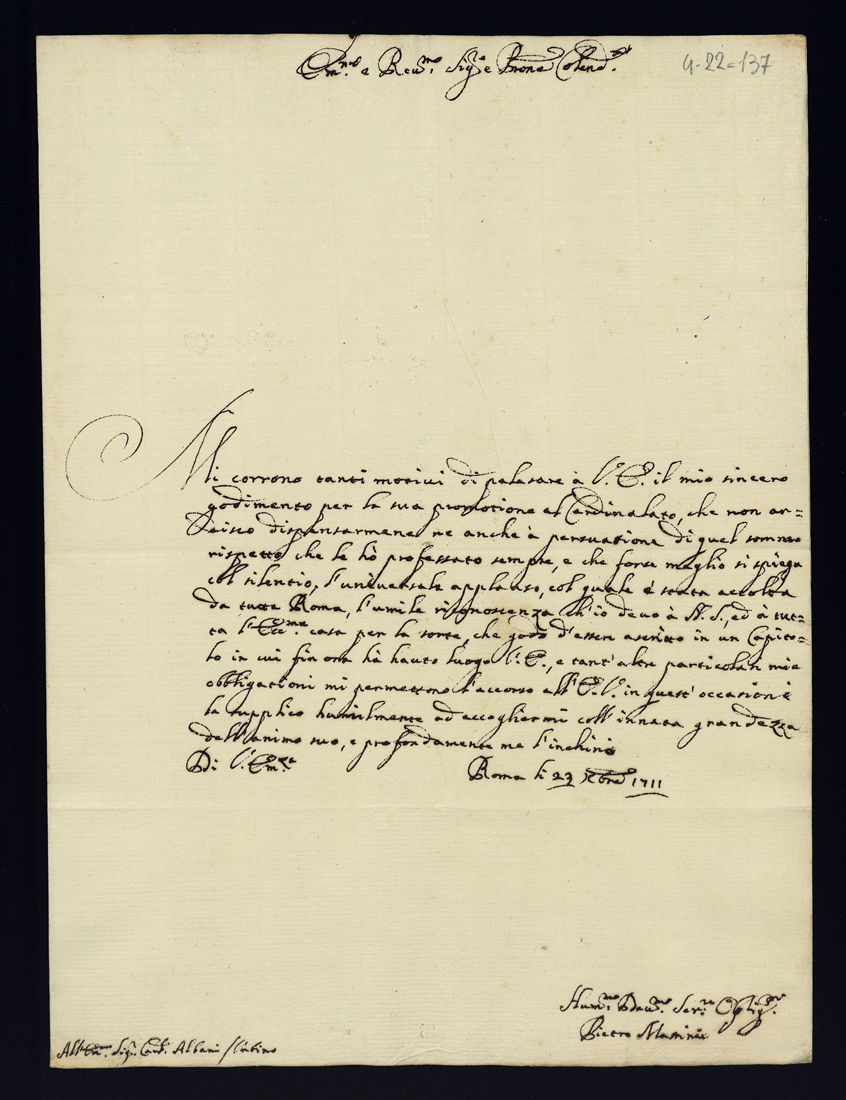 Em.mo e Reu.mo Sig.re e Prone Colend.mo
4-22-137
Mi corrono tanti motiui di palesare à V. E. il mio sincero
godimento per la sua promotione al Cardinalato, che non ar=
disco dispensarmene ne anche à persuatione di quel sommo
rispetto che le hò professato sempre, e che forse meglio si spiega
col silentio, l'uniuersale applauso, col quale è stata accolta
da tutta Roma, l'umile riconoscenza ch'io deuo à N. S., ed à tut=
ta l'Ecc.ma casa per la sorte, che godo d'esser ascritto in un Capito=
lo in cui fin ora hà hauto luogo V. E., e tant'altre particolari mie
obbligationi mi permettono l'accesso all'E. V. in quest'occasione
la supplico humilmente ad accogliermi coll'innata grandezza
dell'animo suo, e profondamente me l'inchino
Di V. Em.za
Roma li 23 Xbre 1711
Hum.mo Deu.mo Ser.re Oblig.mo
Pietro
All'Em.mo Sig. Card. Albani